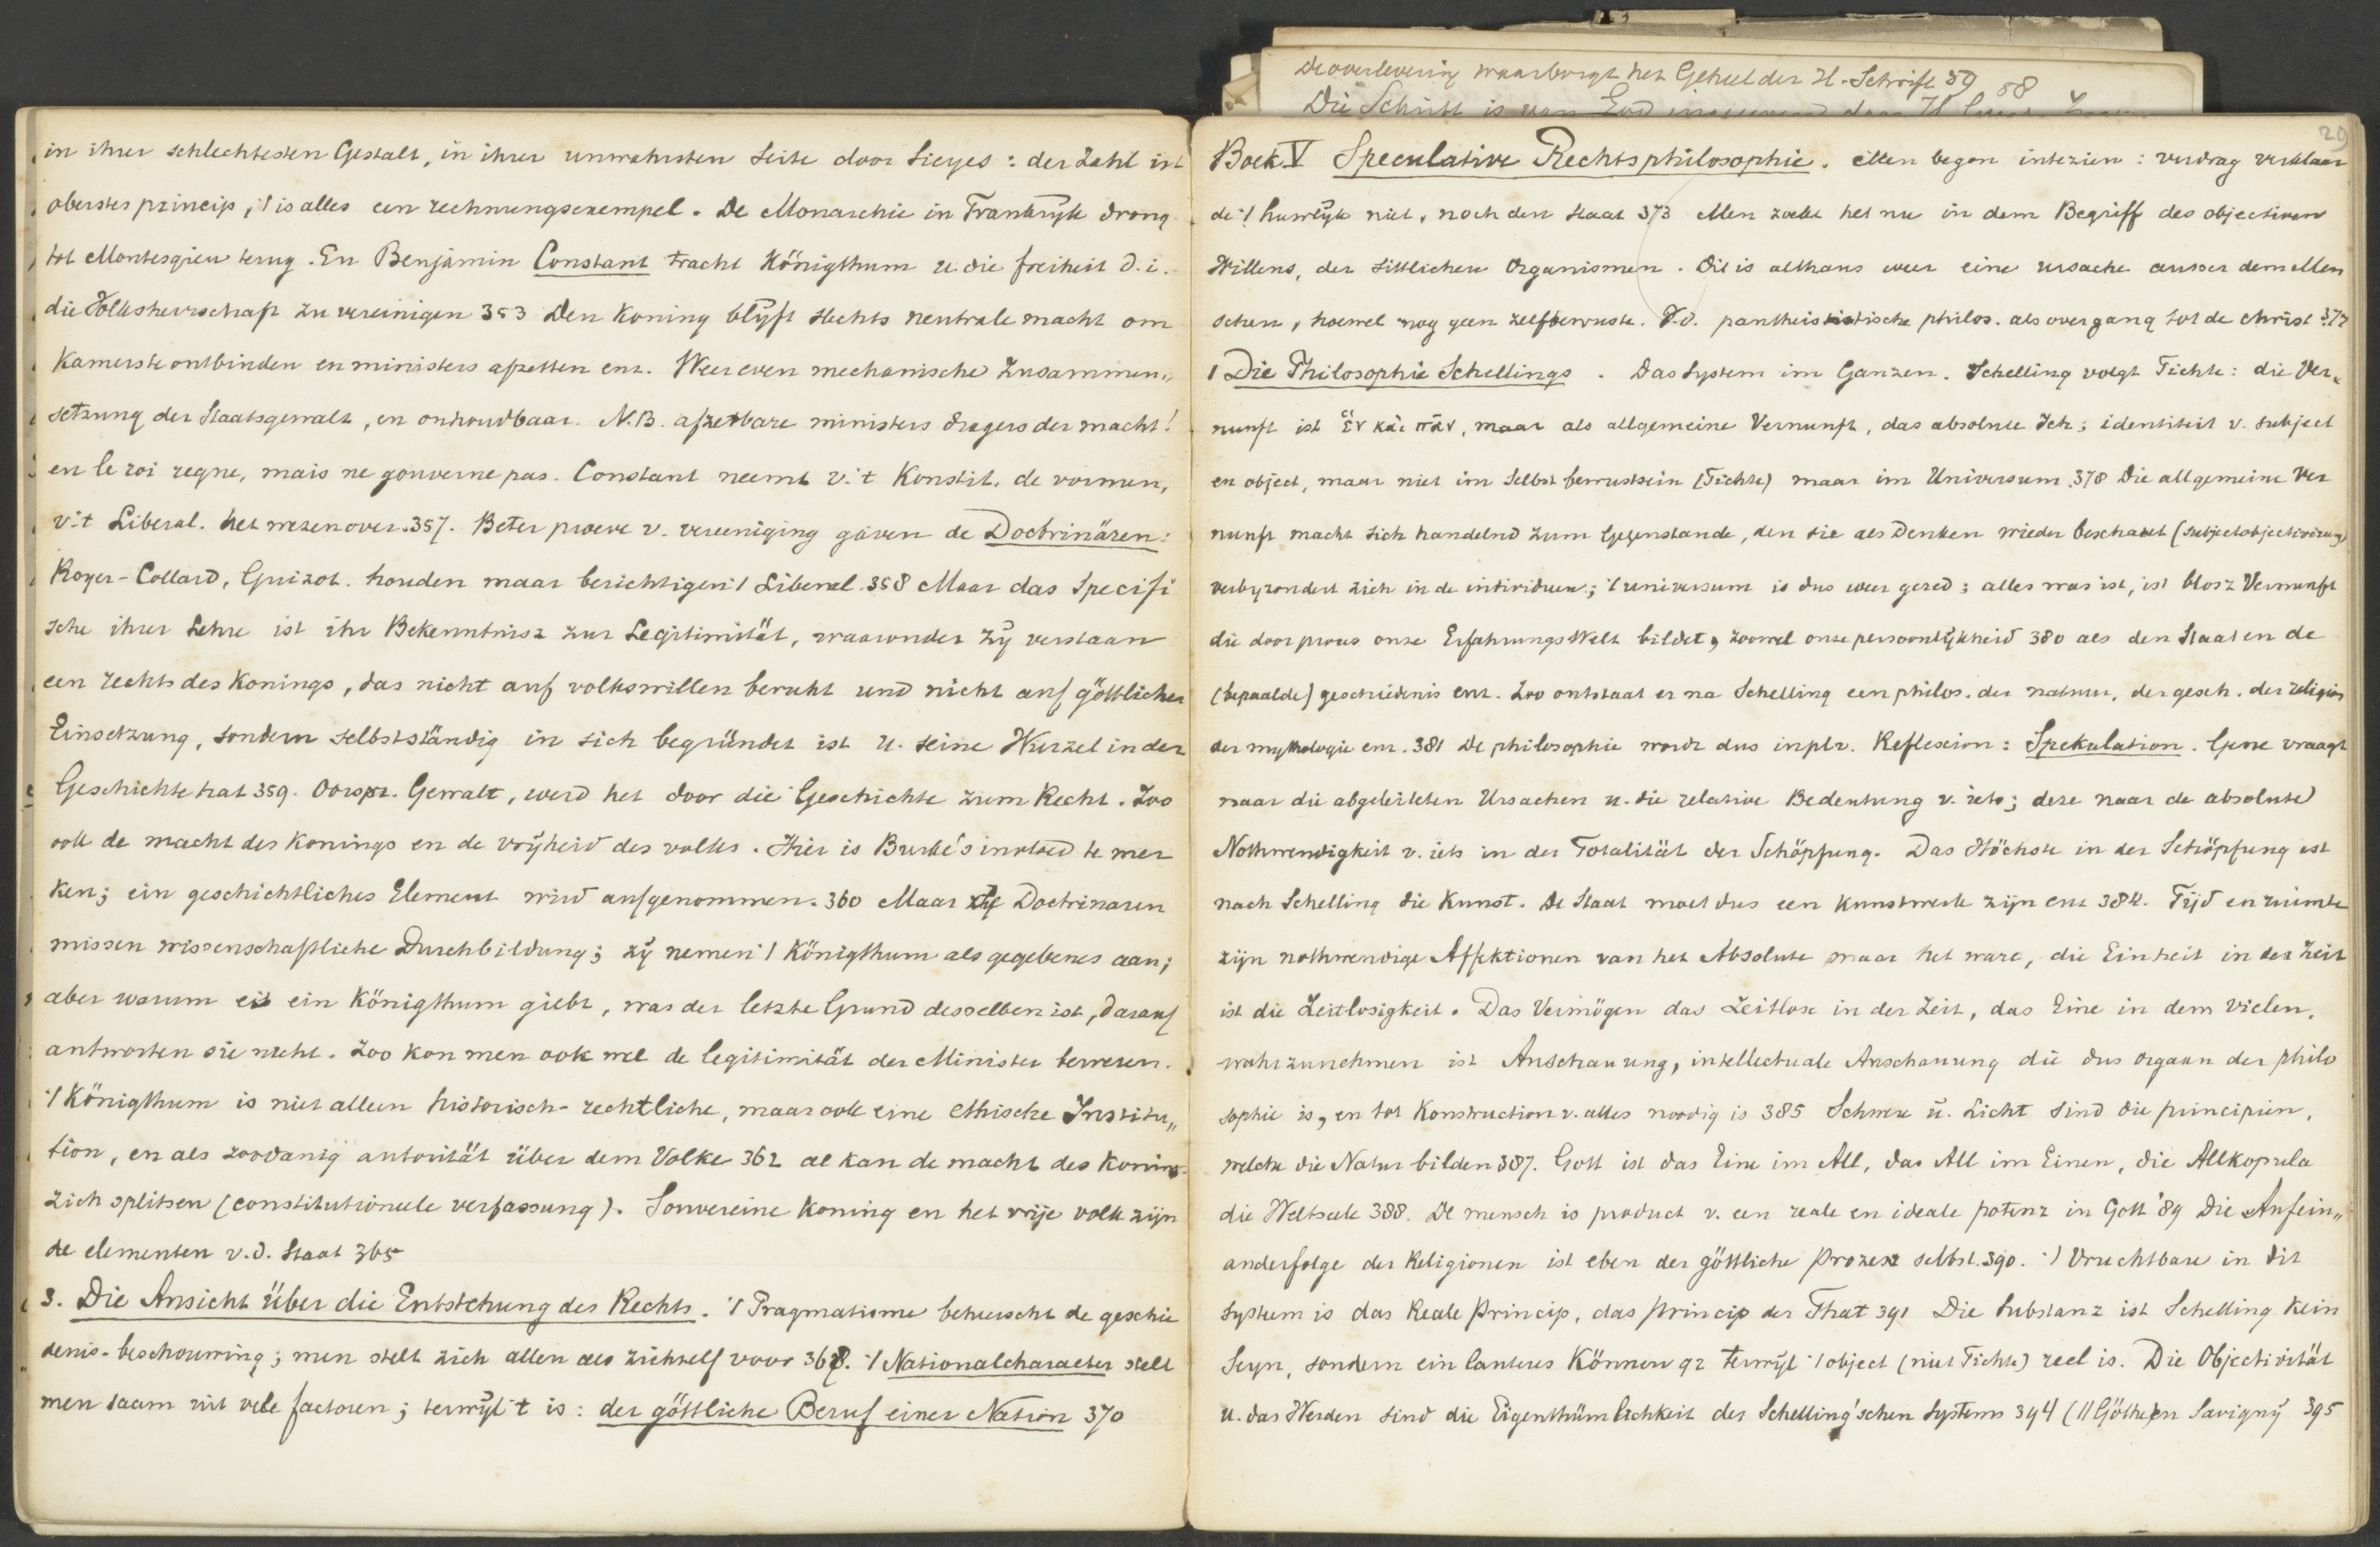 in ihrer schlechtesten Gestalt, in ihrer unwahrsten Seite door Sieyes: der Zahl ist
oberstes princip, 't is alles een rechnungsexempel. De Monarchie in Frankryk drong
tot Montesqieu terug. En Benjamin Constant tracht Königthum u. die freiheit d.i.
die Volksherrschaft zu vereinigen 353 Den Koning blyft slechts neutrale macht om
Kamers te ontbinden en ministers afzetten enz. Weer even mechanische Zusammen„
setzung der Staatsgewalt, en onhoudbaar. N.B. afzetbare ministers dragers der macht!
en le roi regne, mais ne gouverne pas. Constant neemt v. 't Konstit. de vormen,
v. 't Liberal. het wezen over. 357. Beter proeve v. vereeniging gaven de Doctrinären:
Royer-Collard, Guizot. houden maar berichtigen 't Liberal 358 Maar das Specifi
sche ihrer Lehre ist ihr Bekenntnisz zur Legitimität, waaronder zy verstaan
een rechts des Konings, das nicht auf volkswillen beruht und nicht auf göttlicher
Einsetzung, sondern selbstständig in sich begründet ist u. seine Wurzel in der
Geschichte hat 359. Oorspr. Gewalt, werd het door die Geschichte zum Recht. Zoo
ook de macht des Konings en de vryheid des volks. Hier is Burke's invloed te mer
ken; ein geschichtliches Element wird aufgenommen. 360 Maar Doctrinaren
missen wissenschaftliche Durchbildung; zy nemen 't Königthum als gegebenes aan;
aber warum es ein Königthum giebt, was der letzte Grund desselben ist, darauf
antworten sie nicht. Zoo kon men ook wel de legitimität der Minister bewezen.
't Königthum is niet alleen historisch-rechtliche, maar ook eine ethische Institu„
tion, en als zoodanig autorität über dem Volke 362 al kan de macht des Konings
zich splitsen (constitutioneele verfassung). Souvereine Koning en het vrije volk zijn
de elementen v.d. Staat 365
3. Die Ansicht über die Entstehung des Rechts. 't Pragmatisme beheerscht de geschie
denis-beschouwing; men stelt zich allen als zichzelf voor 368. 't Nationalcharacter stelt
men saam uit vele factoren; terwyl 't is: der göttliche Beruf einer Nation 370
De overlevering waarborgt het Geheel der H. Schrift 59 58
Die Schrift is van God
29
Boek V Speculative Rechtsphilosophie. Men begon intezien: verdrag verklaar
de 't huwlyk niet, noch den staat 373 Men zoekt het nu in dem Begriff des objectiven
Willens, der sittlichen Organismen. Dit is althans weer eine ursache ausser dem Men
schen, hoewel nog geen zelfbewuste. V.d. pantheistische philos. als overgang tot de christ 377
1 Die Philosophie Schellings. Das System im Ganzen. Schelling volgt Fichte: die Ver„
nunft ist ἓν καὶ πᾶν, maar als allgemeine Vernunft, das absolute Ich; identiteit v. subject
en object, maar niet im Selbst bewustsein (Fichte) maar im Universum 378 Die allgemeine Ver
nunft macht sich handelnd zum Gegenstande, den sie als Denken wieder beschauet (subjectobjectivirung)
verbyzondert zich in de individuen; 't universum is dus weer gered; alles was ist, ist blosz Vernunft
die door proces onze ErfahrungsWelt bildet, zoowel onze persoonlykheid 380 als den Staat en de
(bepaalde) geschiedenis enz. Zoo ontstaat er na Schelling een philos. der natuur, der gesch. der religion
der mythologie enz. 381 De philosophie wordt dus in plv. Reflexion: Spekulation. Gene vraagt
naar die abgeleiteten Ursachen u. die relative Bedeutung v. iets; deze naar de absolute
Nothwendigkeit v. iets in der Totalität der Schöpfung. Das Höchste in der Schöpfung ist
nach Schelling die Kunst. De Staat moet dus een Kunstwerk zijn enz 384. Tijd en ruimte
zijn nothwendige Affektionen van het Absolute maar het ware, die Einheit in der Zeit
ist die Zeitlosigkeit. Das Vermögen das Zeitlose in der Zeit, das Eine in dem vielen,
wahrzunehmen ist Anschauung, intellectuale Anschauung die dus orgaan der philo
sophie is, en tot Konstruction v. alles noodig is 385 Schwere u. Licht sind die principien,
welche die Natur bilden 387. Gott ist das Eine im All, das All im Einen, die Allkopula
die Weltseele 388. De mensch is product v. een reale en ideale potenz in Gott '89 Die Aufein„
anderfolge der Religionen ist eben der göttliche Prozesz selbst. 390. 't Vruchtbare in dit
System is das Reale Princip, das Princip der That 391 Die Substanz ist Schelling Kein
Seyn, sondern ein lauteres Können 92 terwyl 't object (niet Fichte) reel is. Die Objectivität
u. das Werden sind die Eigenthümlichkeit des Schelling'schen Systems 394 (// Göthe en Savigny 395